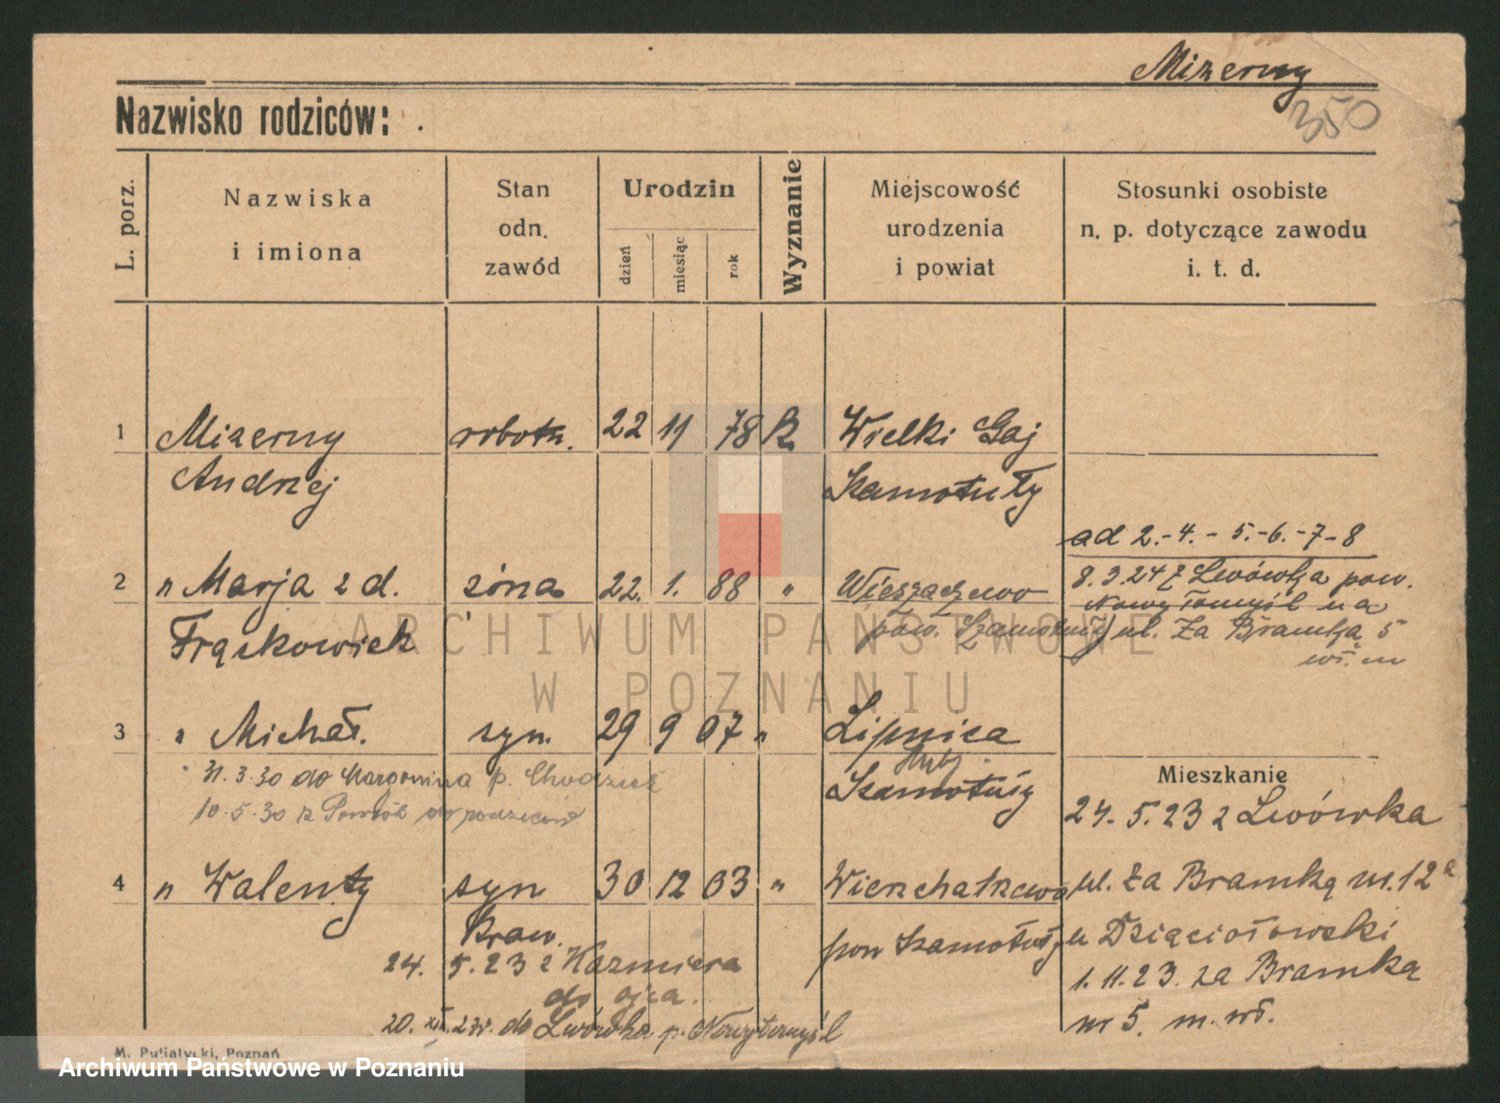 Mizerny
350
Nazwisko rodziców:
L. porz.
Nazwiska
i imiona
Stan
odn.
zawód
Urodzin
dzień
miesiąc
rok
Wyznanie
Miejscowość
urodzenia
i powiat
Stosunki osobiste
n. p. dotyczące zawodu
i. t. d.
1 Mizerny robotn. 22 11 78 k Wielki Gaj
Andrzej Szamotuły
ad 2.-4.-5.-6.-7-8
2 " Marja z d. żona 22. 1. 88 "
8.3.24 z Lwówka pow.
Nowy Tomyśl na
Frąskowiek pow. Szamotuły ul. Za Bramką 5
wł. m
ARCHIWUM PAŃSTWOWE
W POZNANIU
3 " Michał. syn. 29 9 07 " Lipnica
31.3.30 do Margonina p. Chodzież
Szamotuły
10.5.30 z do rodziców
Mieszkanie
24. 5. 23 z Lwówka
4 " Walenty syn 30 12 03 "
ul. Za Bramką nr. 12a
kraw.
pow Szamotuły
u Dzięciołowski
24. 5. 23 z Kazmierza
do ojca.
1. 11. 23. za Bramką
20. XI. 24. do Lwówka p. Nowytomyśl
nr 5. m. wł.
M. Putiatycki, Poznań
Archiwum Państwowe w Poznaniu